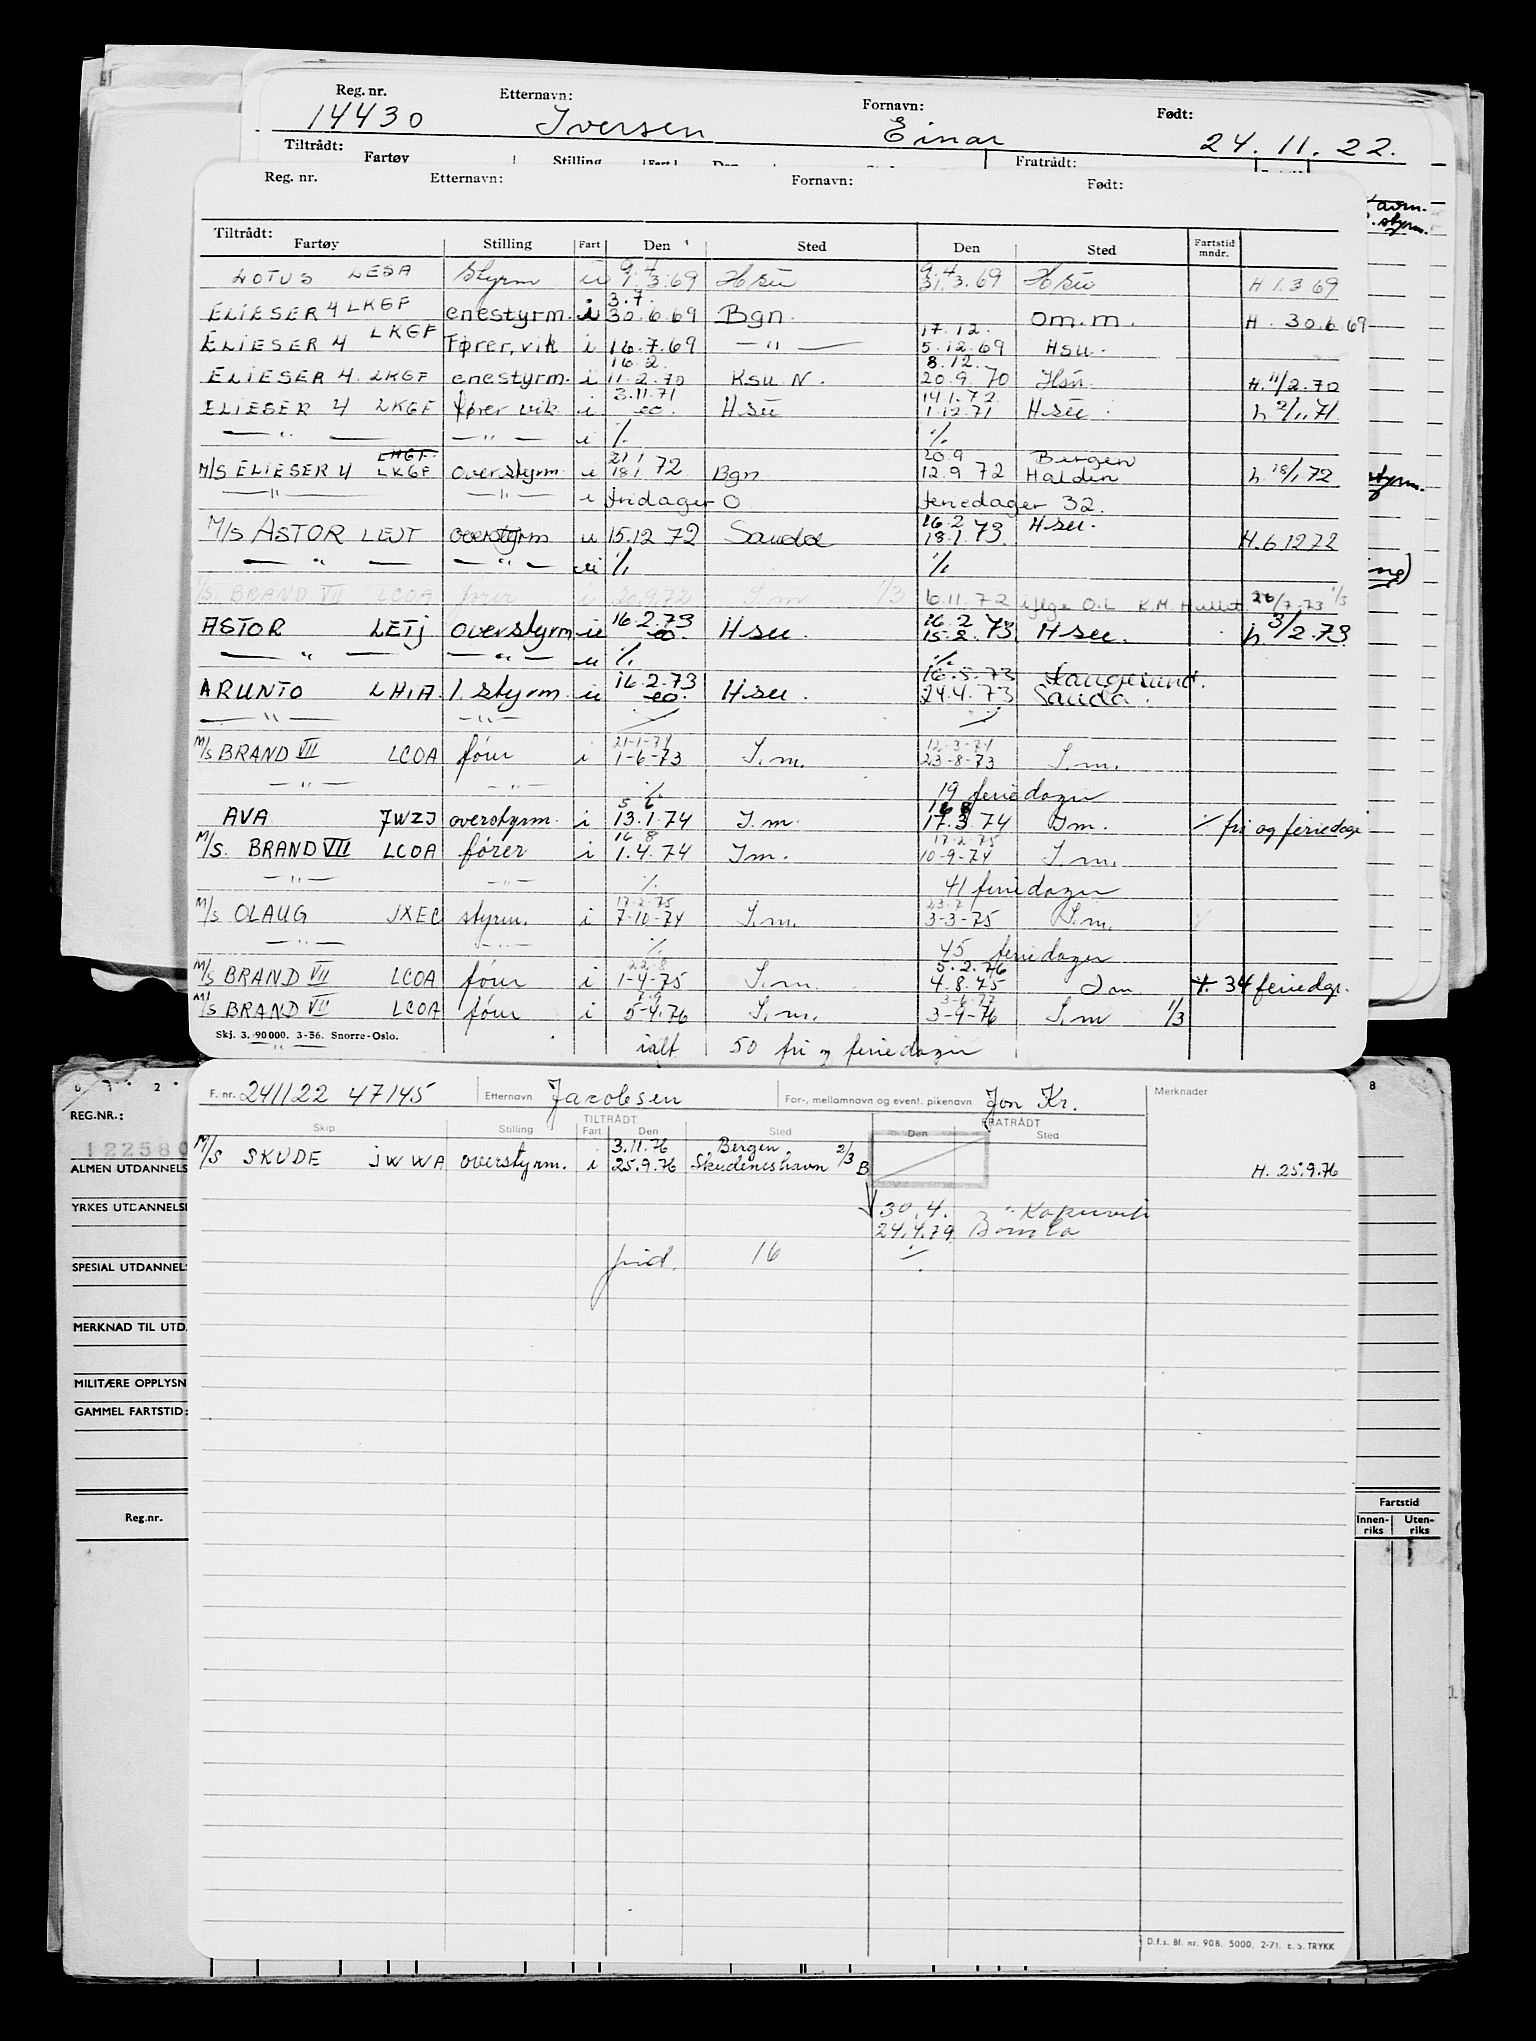 Reg. nr. Etternavn: Fornavn: Født:
14430 Iversen Einar 24.11.22.
Tiltrådt: Fartøy Stilling Fart Den Fratrådt:
Reg. nr. Etternavn: Fornavn: Født:
Tiltrådt:
Fartøy Stilling Fart Den Sted Den Sted Fartstid mndr.
9.4 9.4
LOTUS LESA Styrm u 1.3.69 Hsu 31.3.69 Hsu H 1.3.69
3.7.
ELIESER 4 LKGF enestyrm. i 30.6.69 Bgn. om.m. H. 30.6.69
17.12.
ELIESER 4 LKGF Fører, vik i 16.7.69 — " — 5.12.69 Hsu.
16.2. 8.12.
ELIESER 4. LKGF enestyrm. i 11.2.70 Ksu N. 20.9.70 Hsu. H. 11/2.70
3.11.71 14.1.72
ELIESER 4 LKGF fører vik i eo. Hsu 1.12.71 Hsu. h 2/11.71
— " — — " — i % %
21/1 20.9 Bergen
M/S ELIESER 4 LKGF overstyrm. u 18/1 72 Bgn 12.9 72 Halden h. 18/1 72
— " — — " — i fridager 0 feriedager 32.
16.2 Hsu.
M/S ASTOR LEJT overstyrm u 15.12 72 Sauda 18.1.73. H. 6.12 72
— " — — " — u % %
M/S. BRAND VII LCOA fører i 20.9.72 I.m 1/3 6.11.72 iflge O.L K.M. Hullet. 26/7.73 1/3
16.2.73 16.2
ASTOR LETj overstyrm u eo. Hsu. 15.2.73 Hsu. h 3/2.73
— " — — " — u % %
16.2.73 16.5.73 Haugesund.
ARUNTO LHIA 1. styrm. u eo. Hsu. 24.4.73 Sauda.
— " — — " — % %
21-1-74 12-3-74
M/S BRAND VII LCOA fører i 1-6-73 I.m. 23-8-73 I.m.
— " — — " — % 19 feriedager
5 6
AVA JWZJ overstyrm. i 13.1.74 I.m. 17.3.74 Im. % fri og feriedage
16 8 17-2-75
M/S. BRAND VII LCOA fører i 1.4.74 Im. 10-9-74 I.m.
— " — — " — % 41 feriedager
17-2-75 23-7
M/S OLAUG JXEC styrm. i 7-10-74 I.m. 3-3-75 I.m.
— " — — " — % 45 feriedager
22-8 5.2.76
M/S BRAND VII LCOA fører i 1-4-75 I.m. 4.8.75 Im %. 34 feriedgr.
7.9 3-6-77
M/S BRAND VII LCOA fører i 5-4.76 I.m. 3-9-76 I.m 1/3
Skj. 3. -90 000. 3-56. Snorre-Oslo. ialt 50 fri og feriedager
F. nr. 241122 47145 Etternavn Jacobsen For-, mellomnavn og event. pikenavn Jon Kr. Merknader
TILTRÅDT FRATRÅDT
Skip Stilling Fart Den Sted Den Sted
3.11.76 Bergen
M/S SKUDE JWWA overstyrm. i 25.9.76 Skudeneshavn 2/3 B H. 25.9.76
30.4. Kopervik
24.4.79 Bømlo
frid. 16 %
D.f.s. Bl. nr. 908. 5000, 2-71. E. S. TRYKK
REG.NR.:
122580
ALMEN UTDANNELS
YRKES UTDANNELSE
SPESIAL UTDANNELS
MERKNAD TIL UTD.
MILITÆRE OPPLYSN
GAMMEL FARTSTID:
Reg.nr.
Fartstid
Innenriks Utenriks